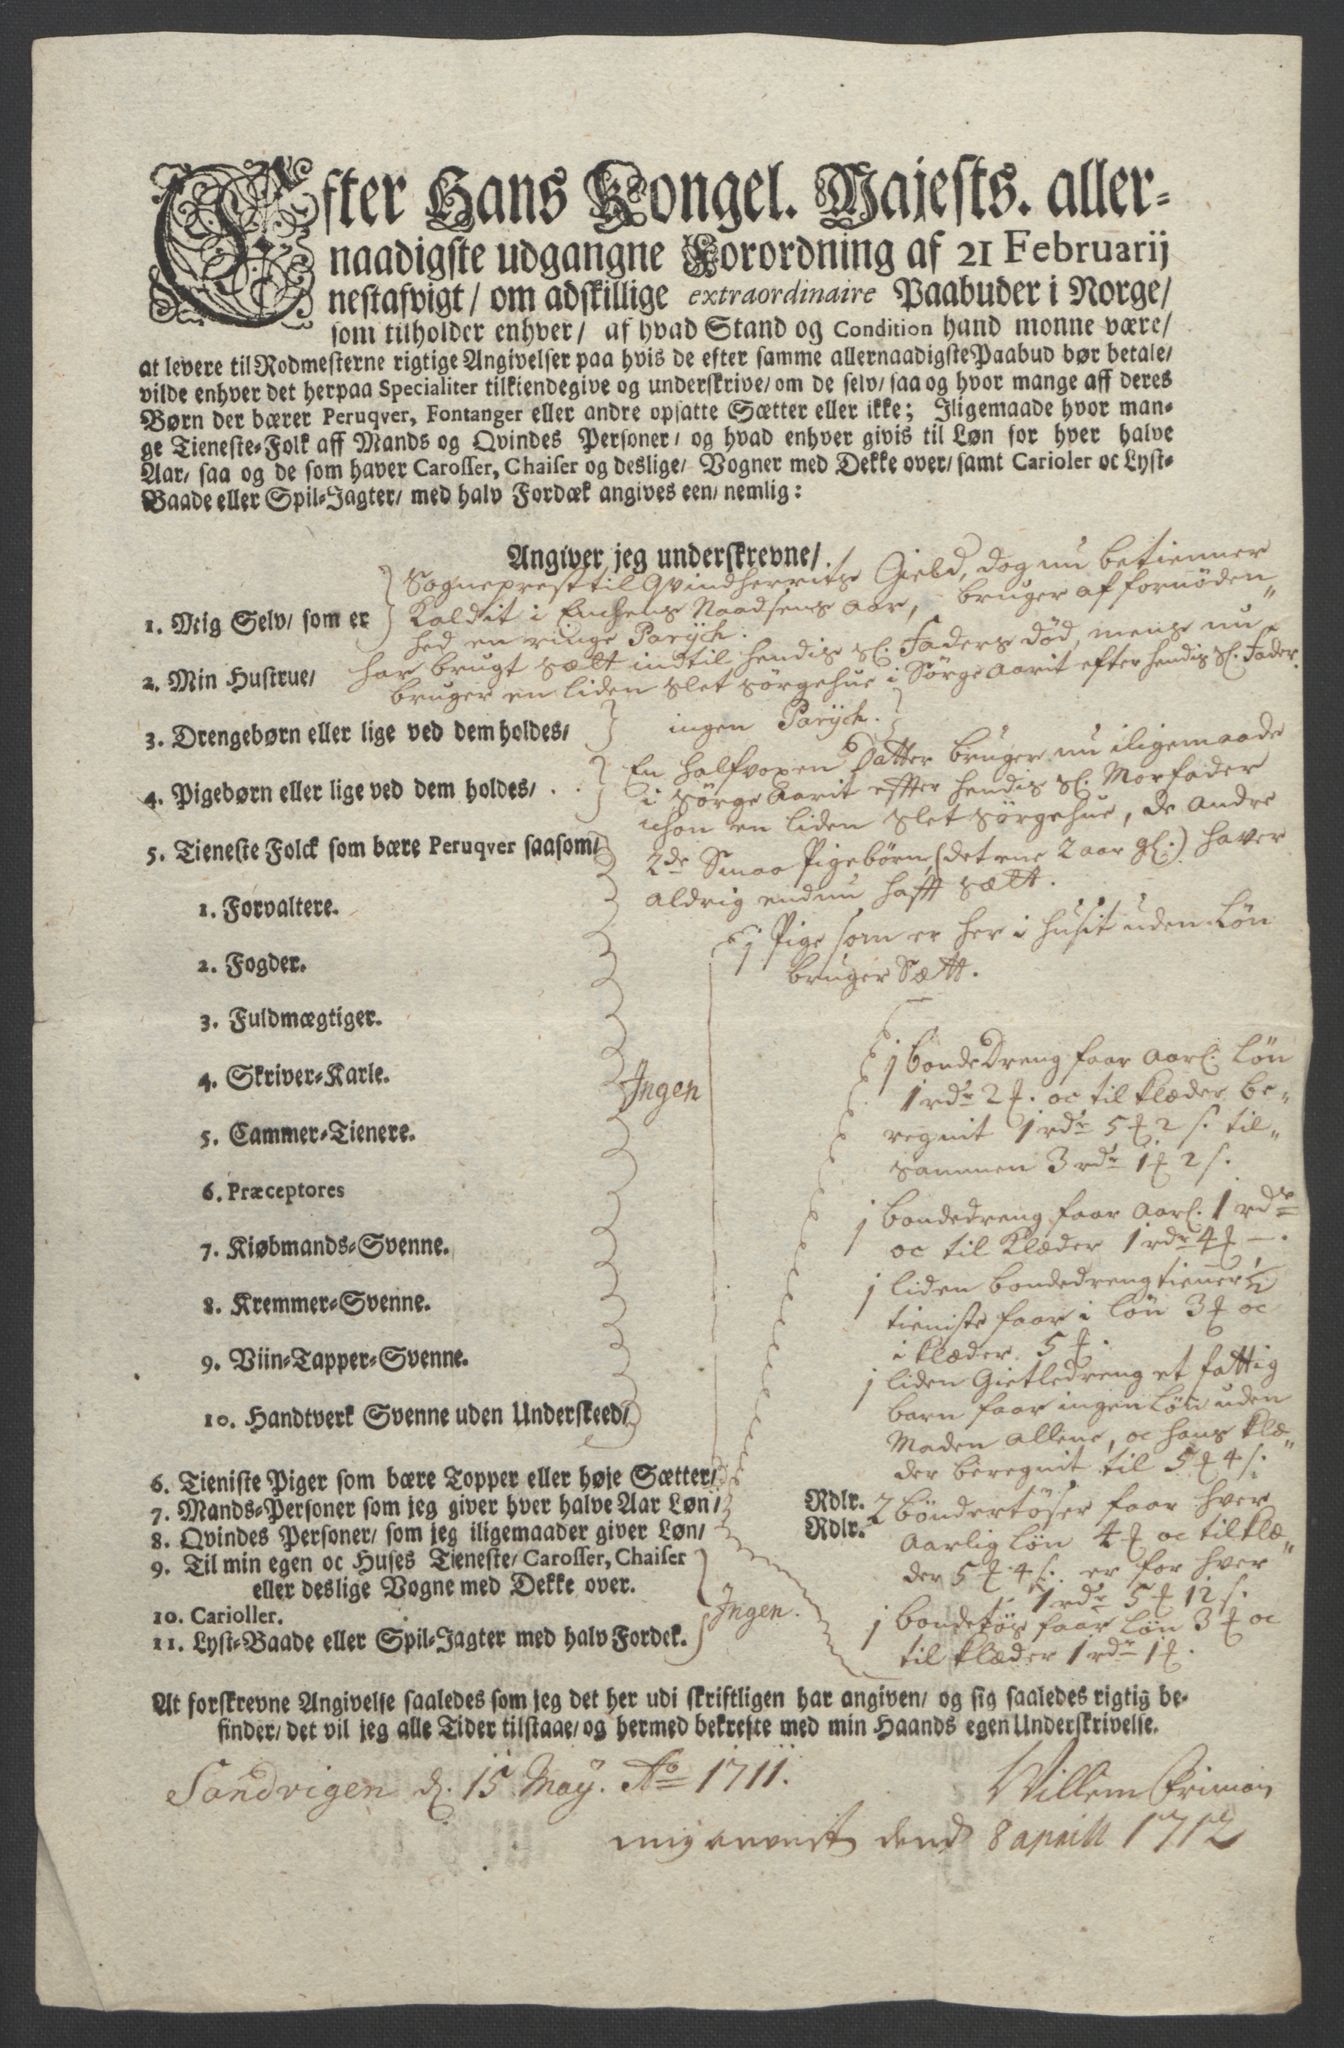 Efter Hans Kongel. Majests. aller-
naadigste udgangne Forordning af 21 Februarij
nestafvigt/ om adskillige extraordinaire Paabuder i Norge/
som tilholder enhver/ af hvad Stand og Condition hand monne være/
at levere til Rodmesterne rigtige Angivelser paa hvis de efter samme allernaadigste Paabud bør betale/
vilde enhver det herpaa Specialiter tilkiendegive og underskrive/ om de selv/ saa og hvor mange aff deres
Børn der bærer Peruqver, Fontanger eller andre opsatte Sætter eller ikke; Iligemaade hvor man-
ge Tieneste-Folk aff Mands og Qvindes Personer/ og hvad enhver givis til Løn for hver halve
Aar/ saa og de som haver Carosser, Chaiser og deslige/ Vogner med Dekke over/ samt Carioler oc Lyst-
Baade eller Spil-Jagter/ med halv Fordæk angives een/ nemlig:
Angiver jeg underskrevne/
1. Mig Selv/ som er
Sogneprest til Qvindherrits Gield, dog nu betienner
Kaldit i Enchens Naadsens Aar, bruger af fornöden"
hed en ringe Parÿch.
2. Min Hustrue/
har brugt sætt indtil hendis Sl. Faders död, mens nu
bruger en liden slet sörgehue i Sörge Aarit efter hendis Sl. Fader.
3. Drengebørn eller lige ved dem holdes/
ingen Parÿch.
4. Pigebørn eller lige ved dem holdes/ . .
En halfvoxen Datter bruger nu iligemaade
i sörge Aarit effter hendis Sl. Morfader
en liden slet sörgehue, de andre
2de Smaa Pigebörn, (det ene 2 aar gl.) haver
aldrig endnu hafft sætt.
5. Tieneste Folck som bære Peruqver saasom/
1. Forvaltere.
2. Fogder.
3. Fuldmægtiger.
4. Skriver-Karle.
5. Cammer-Tienere.
6. Præceptores
7. Kiøbmands-Svenne.
8. Kremmer-Svenne.
9. Viin-Tapper-Svenne.
10. Handtverk Svenne uden Underskeed/
Ingen
1 Pige som er her i husit uden Løn
bruger Sætt.
1 bondeDreng faar Aarl. Løn
1 rdr 2 ʒ. oc til klæder be"
regnit 1 rdr 5 ʒ 2 s. til"
sammen 3 rdr 1 ʒ 2 s.
1 bondedreng faar Aarl. 1 rdr
oc til Klæder 1 rdr 4 ʒ —.
1 liden bondedreng tiener
tieniste faar i løn 3 ʒ oc
i klæder 5 ʒ.
1 liden Gietledreng et fattig
barn faar ingen Løn uden
Maden allene, oc hans klæ"
der beregnit til 5 ʒ 4 s.
6. Tieniste Piger som bære Topper eller høje Sætter/
7. Mands-Personer som jeg giver hver halve Aar Løn/
Rdlr.
8. Qvindes Personer/ som jeg iligemaader giver Løn/
Rdlr.
2 böndertöser faar hver
Aarlig løn 4 ʒ oc til klæ"
der 5 ʒ 4 s. er for hver
1 rdr 5 ʒ 12 s.
1 bondetös faar Løn 3 ʒ oc
til klæder 1 rdr 1 ʒ.
9. Til min egen oc Huses Tieneste/ Carosser, Chaiser
eller deslige Vogne med Dekke over.
10. Carioller.
11. Lyst-Baade eller Spil-Jagter med halv Fordek.
Ingen.
At forskrevne Angivelse saaledes som jeg det her udi skriftligen har angiven/ og sig saaledes rigtig be-
finder/ det vil jeg alle Tider tilstaae/ og hermed bekrefte med min Haands egen Underskrivelse.
Sandvigen d. 15 May. Ao 1711.
Willem Friman
mig levert dend 8 aprill 1712